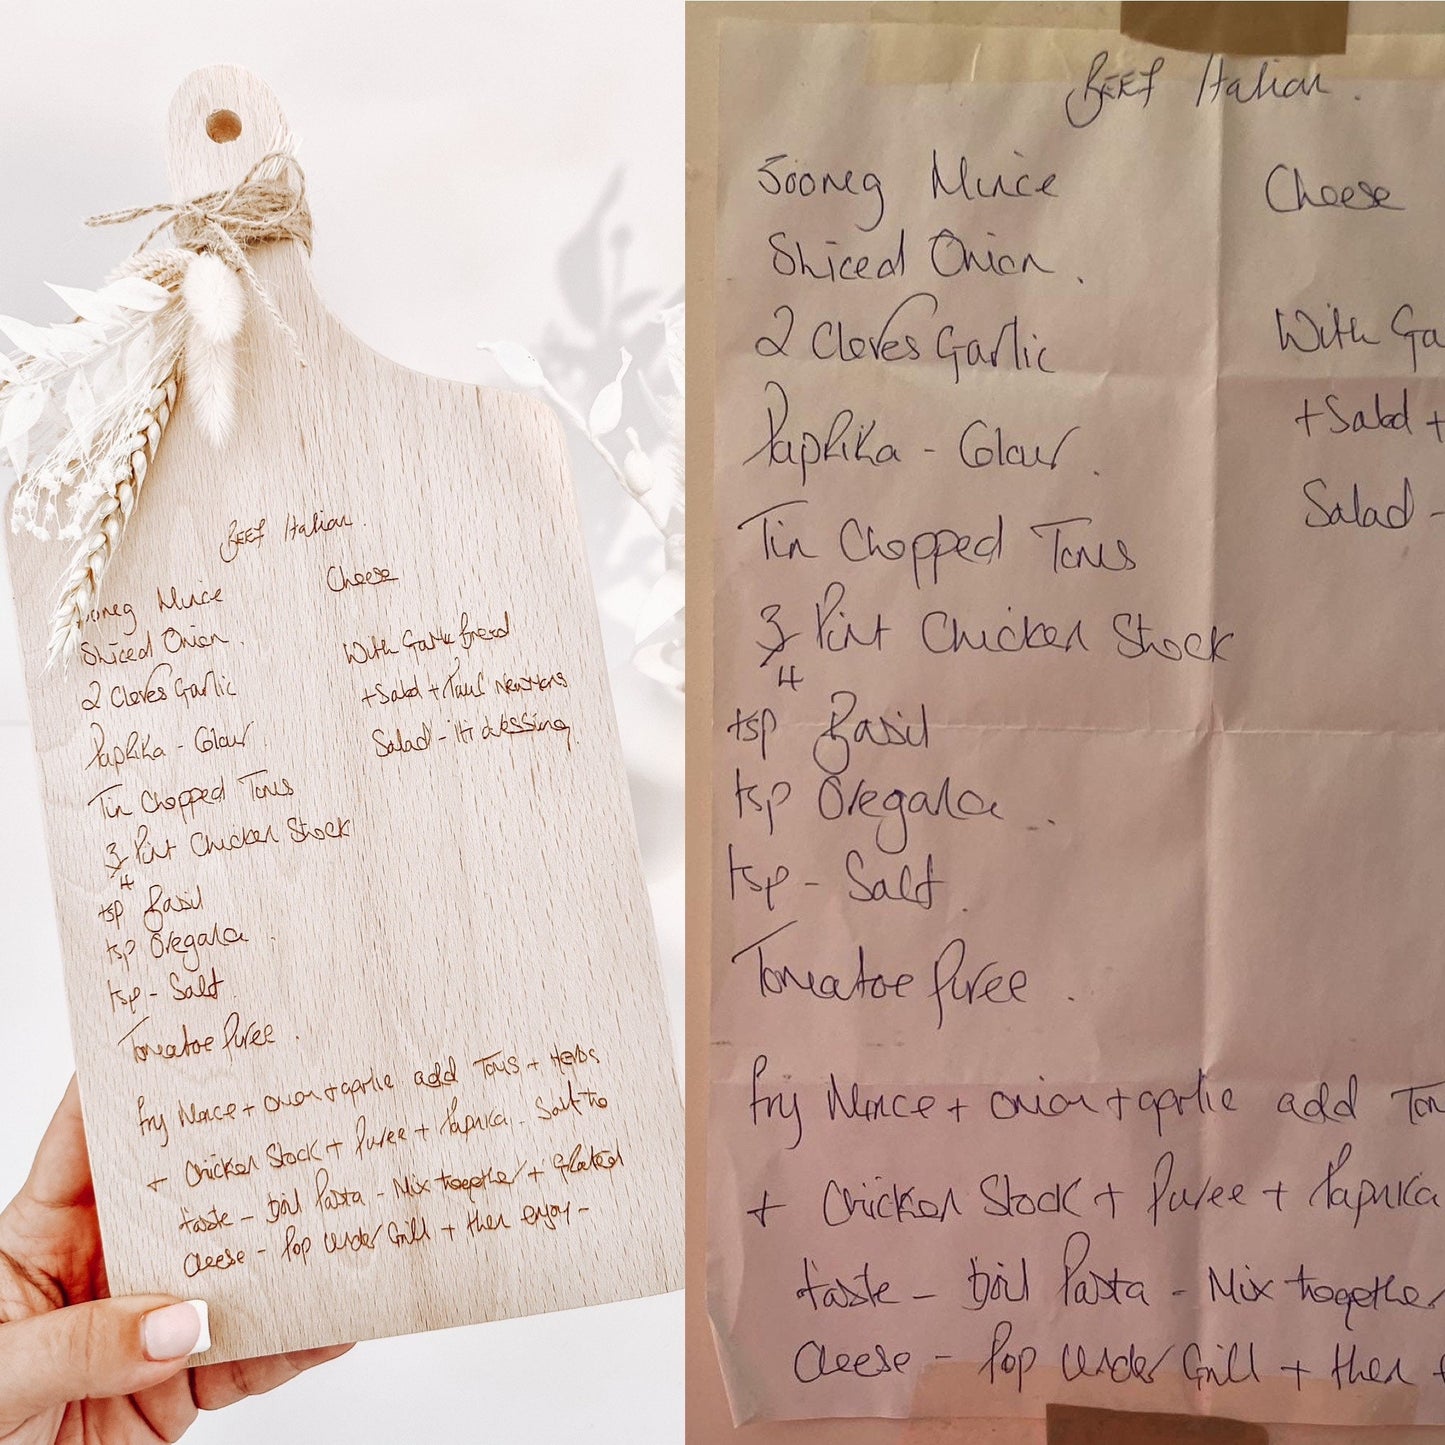 BEEF Italian.
500mg Mince
Cheese
Sliced Onion.
With Garlic Bread
2 Cloves Garlic
+ Salad + Paul Newmans
Paprika - Colour.
Salad - its dressing.
Tin Chopped Toms
3/4 Pint Chicken Stock
tsp Basil
tsp Oregano.
tsp - Salt.
Tomatoe Puree.
Fry Mince + onion + garlic add Toms + Herbs
+ Chicken Stock + Puree + Paprika. Salt to
taste - Boil Pasta - Mix together + Grated
Cheese - Pop Under Grill + then enjoy -
BEEF Italian.
500mg Mince
Cheese
Sliced Onion.
2 Cloves Garlic
With Ga
Paprika - Colour.
+ Salad +
Tin Chopped Toms
Salad -
3/4 Pint Chicken Stock
tsp Basil
tsp Oregano.
tsp - Salt.
Tomatoe Puree.
Fry Mince + onion + garlic add Tom
+ Chicken Stock + Puree + Paprika
taste - Boil Pasta - Mix together
Cheese - Pop Under Grill + then